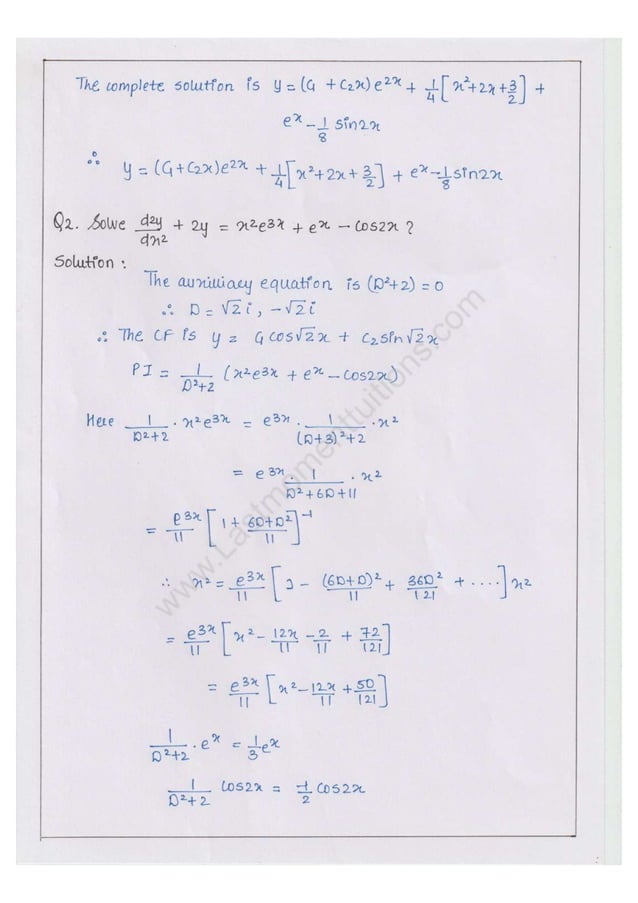 The complete solution is y = (C₁ + C₂x) e²ˣ + 1/4 [x²+2x+3/2] +
eˣ - 1/8 sin2x
∴ y = (C₁+C₂x)e²ˣ + 1/4[x²+2x+3/2] + eˣ-1/8 sin2x
Q2. Solve d²y/dx² + 2y = x²e³ˣ + eˣ - cos2x ?
Solution :
The auxilliary equation is (D²+2) = 0
∴ D = √2 i , -√2 i
∴ The CF is y = C₁ cos√2 x + C₂ sin√2 x
PI = 1/D²+2 (x²e³ˣ + eˣ - cos2x)
Here 1/D²+2 . x²e³ˣ = e³ˣ . 1/(D+3)²+2 . x²
= e³ˣ . 1/D²+6D+11 . x²
= e³ˣ/11 [1 + 6D+D²/11]⁻¹
∴ x² = e³ˣ/11 [1 - (6D+D)²/11 + 36D²/121 + ....] x²
= e³ˣ/11 [x² - 12x/11 - 2/11 + 72/121]
= e³ˣ/11 [x² - 12x/11 + 50/121]
1/D²+2 . eˣ = 1/3 eˣ
1/D²+2 cos2x = -1/2 cos2x
www.Lastmomenttuitions.com